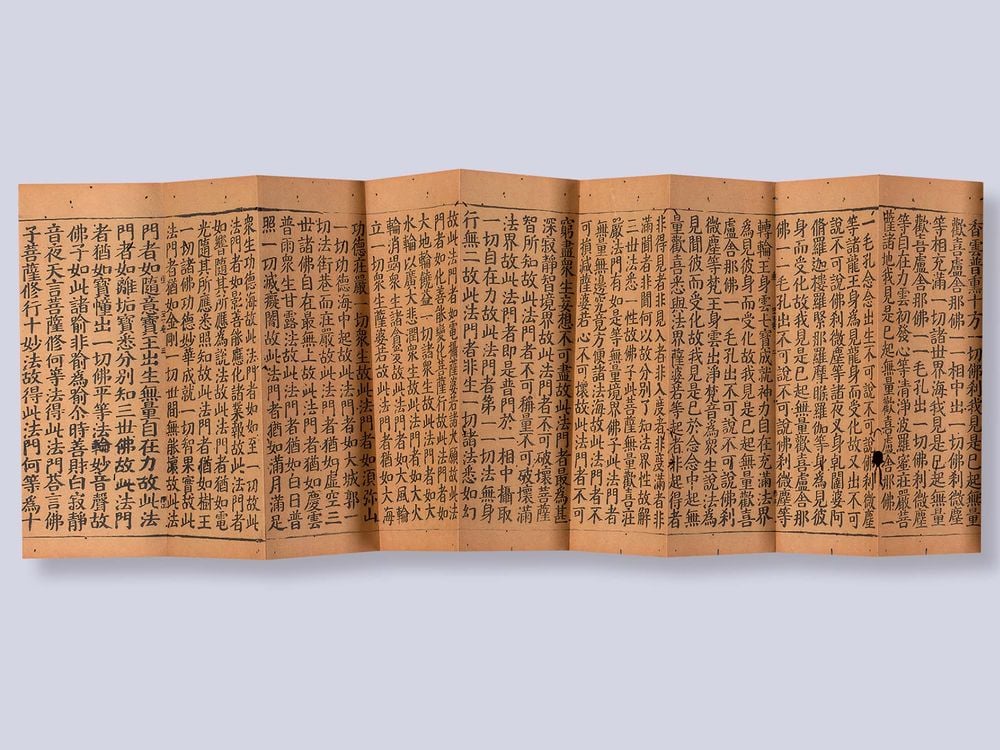 香雲普熏十方一切佛刹我見是已起無量
歡喜盧舍那佛一一相中出一切佛刹微塵
等相充滿一切諸世界海我見是已起無量
歡喜盧舍那佛一一毛孔出一切佛刹微塵
等自在力雲初發心等清淨波羅蜜莊嚴菩
薩諸地我見是已起無量歡喜盧舍那佛
一毛孔念念出生不可說不可說佛刹微塵
等諸龍王身為見龍身而受化故又出不可
說不可說佛刹微塵等諸夜叉身乾闥婆阿
脩羅迦樓羅緊那羅摩睺羅伽等身為見彼
身而受化故我見是已起無量歡喜盧舍那
佛一一毛孔出不可說不可說佛刹微塵等
轉輪王身雲七寶成就神力自在充滿法界
為見彼身而受化故我見是已起無量歡喜
盧舍那佛一一毛孔出不可說不可說佛刹
微塵等梵王身雲出淨梵音為衆生說法為
見聞彼而受化故我見是已於念念中起無
量歡喜悉與法界薩婆若等起者非起得者
非得見者非見入者非入度者非度滿者非
滿聞者非聞何以故分別了知法界性故解
三世法一性故佛子此無量歡喜莊
嚴法門者有如是等無量境界佛子此法門者
無量無邊究竟方便諸法海故此法門者不
可損減薩婆若心不可壞故此法門者不可
窮盡衆生妄想不可盡故此法門者最為甚
深寂靜智境界故此法門者不可破壞菩薩
智所知故此法門者不可稱量不可破壞滿
法界故此法門者即是普門於一相中攝取
一切自在力故此法門者第一一切法無身
行無二故此法門者非生一切諸法悉如幻
故此法門者如電攝薩婆若諸大願故此法
門者如化善能變化菩薩行故此法門者如
大地輪饒益一切諸衆生故此法門者如大
水輪以廣大悲潤衆生故此法門者如大火
輪消渴衆生諸貪愛故此法門者如大風輪
立一切衆生薩婆若故此法門者如大海輪
功德莊嚴一切衆生故此法門者如須彌山
一切功德海中起故此法門者如大城郭一
切法街巷而莊嚴故此法門者猶如虛空三
世諸佛自在最無上故此法門者猶如慶雲
普雨衆生甘露法故此法門者猶如白日普
照一切滅癡闇故此法門者猶如滿月滿足
衆生功德海故此法門者如如至一切故此
法門者如影善能應化諸業報故此法門者
如響應其所應為說法故此法門者如電
光隨其所應悉照知故此法門者猶如樹王
一切諸佛功德妙華成就一切智果實故此
法門者猶如金剛一切世間無能壞故此法
門者如隨意寶王出生無量自在力故此法
門者如離垢寶悉分別知三世佛故此法門
者猶如寶幢出一切佛平等法輪妙音聲故
佛子如此諸喻非喻為喻介時善財白寂靜
音夜天言菩薩修何等法得此法門荅言佛
子菩薩修行十妙法故得此法門何等為十